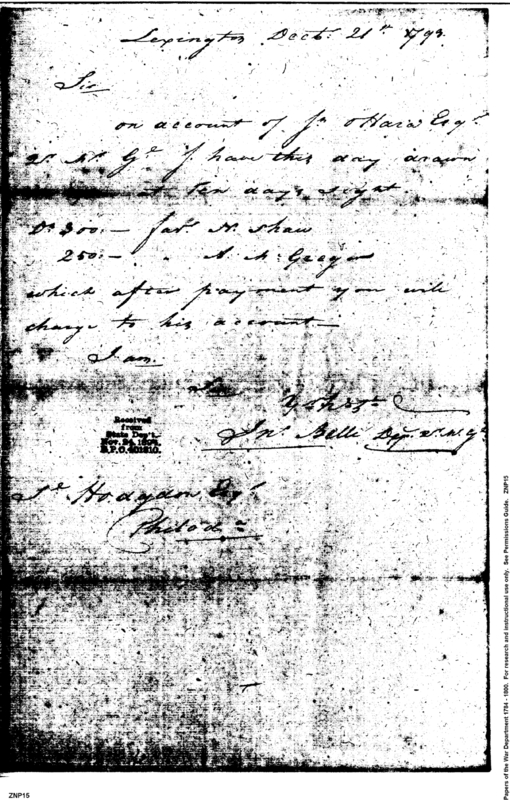 Lexington Decr. 21st 1793.
Sir
on account of Js OHara Esqr.
Qr. Mr. Gl. I have this day drawn
at ten days sight.
Ds 300.— favr N. Shaw
250.— " A. McGregor
which after payment you will
charge to his account—
I am.
Sir
Yr ob St
Jno. Belli Dep. Qr. M. Gl
Received
from
State Dep't.
Nov. 24, 1894
R.P.O. 401810.
Sl. Hodgdon Esqr.
Philada
ZNP15
Papers of the War Department 1784 - 1800. For research and instructional use only. See Permissions Guide. ZNP15